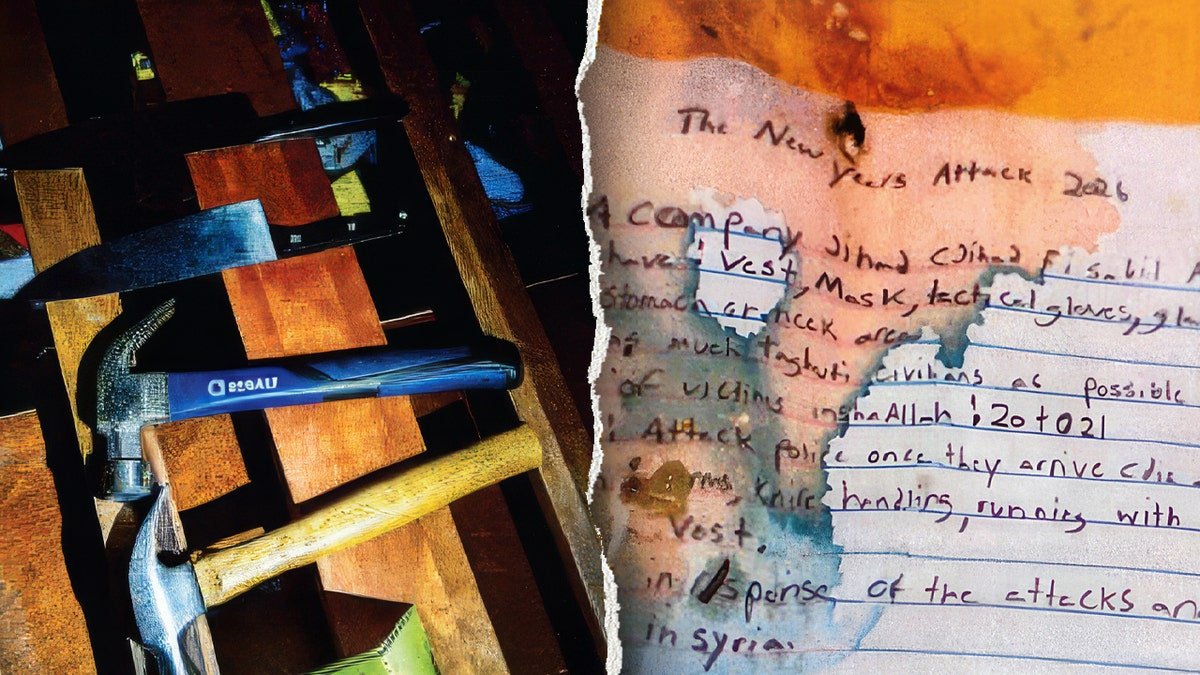 The New Years Attack 2026
A company Jihad (Jihad fi sabil
have : Vest, Mask, tactical gloves,
stomach or neck area
much taghuti civilians as possible
of victims inshaAllah : 20 to 21
Attack police once they arrive
knife handling, running with
Vest.
in of the attacks
in syria.